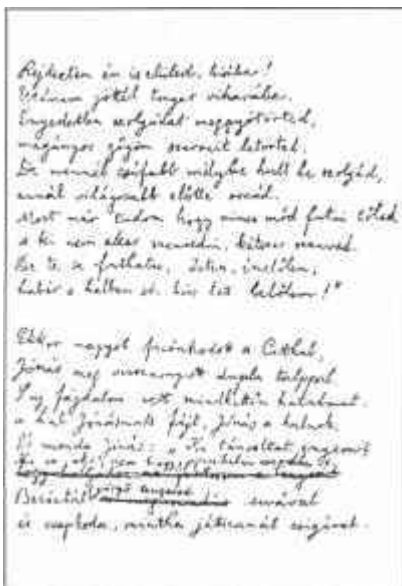 Rejteztem én is előled, hiába!
Utánam jöttél tenger viharába.
Engedetlen szolgádat meggyötörted,
magányos gőgöm szarvait letörted.
De mennél csúfabb mélybe hull le szolgád,
annál világosabb előtte orcád.
Most már tudom hogy nincs mód futni tőled
s ki nem akar szenvedni, kétszer szenved.
De te se futhatsz, Isten, énelőlem,
habár e halban sós hús lett belőlem!"
Ekkor nagyot ficánkodott a Cethal,
Jónás meg visszarugott dupla talppal.
S igy fájdalom vett mindkettőn hatalmat:
a hal Jónásnak fájt, Jónás a halnak.
És monda Jónás: „Ki táncoltat
és csapkodva, mintha játszanál csigával.